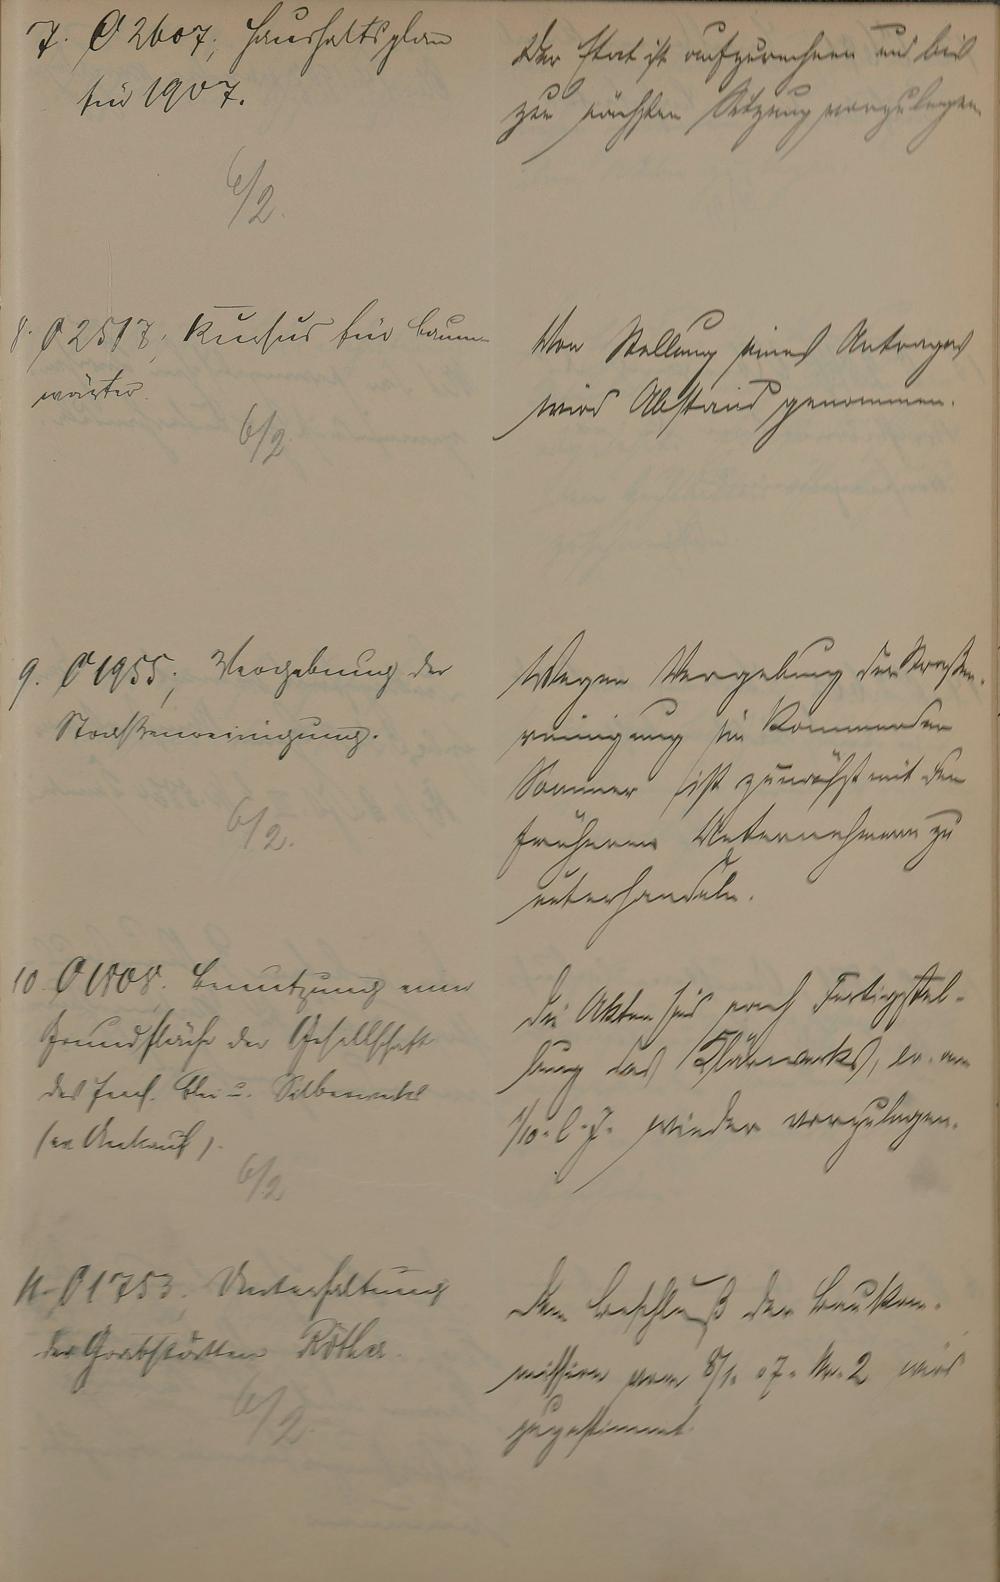 7. O 2607; Haushaltsplan
für 1907.
6/2.
Der Etat ist aufzurechnen und bis
zur nächsten Sitzung vorzulegen
8. O 2517; Kursus für Baum-
wärter.
6/2.
Von Stellung eines Antrages
wird Abstand genommen.
9. O 1955; Vergebung der
Straßenreinigung.
6/2.
Wegen Vergebung der Straßen-
reinigung im kommenden
Sommer ist zunächst mit den
früheren Unternehmern zu
unterhandeln.
10. O 1808. Benutzung einer
Grundfläche der Gesellschaft
des Blei u. Silberwerks
(Ankauf).
6/2
Die Akten sind nach Fertigstel-
lung des Klärwerks, am
1/10. l. J. wieder vorzulegen.
11. O 1753; Unterhaltung
der Grabstätten Röther.
6/2.
Dem Beschluß der Baukom-
mission vom 8/1. 07. Nr. 2 wird
zugestimmt